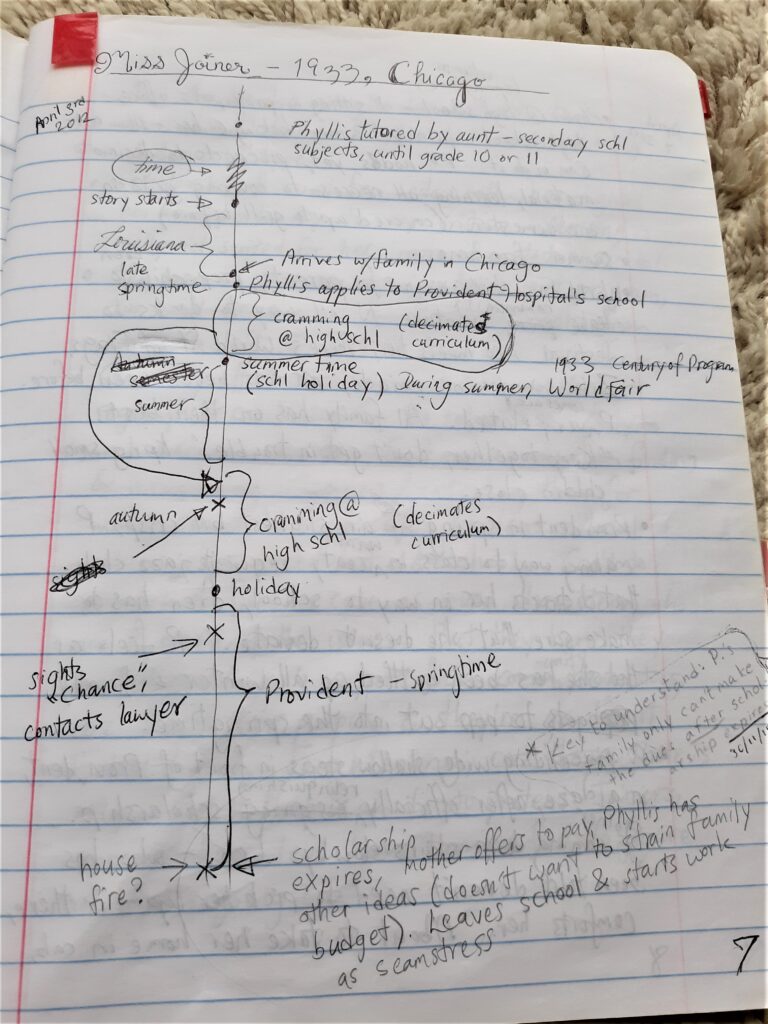 Miss Joiner - 1933, Chicago
April 3rd
2012
Phyllis tutored by aunt - secondary schl
subjects, until grade 10 or 11
time
story starts
Louisiana
late
springtime
Arrives w/family in Chicago
Phyllis applies to Provident Hospital's school
cramming
@ high schl
(decimates
curriculum)
Autumn
semester
summer
summer time
(schl holiday)
During summer,
1933 Century of Program
World Fair
autumn
cramming @
high schl
(decimates
curriculum)
sights
holiday
sights
"Chance",
contacts lawyer
Provident - springtime
* Key to understand: P.'s
family only can't make
the dues after schol-
arship expires
house
fire?
scholarship
expires, Mother offers to pay, Phyllis has
other ideas (doesn't want to strain family
budget). Leaves school & starts work
as seamstress
7